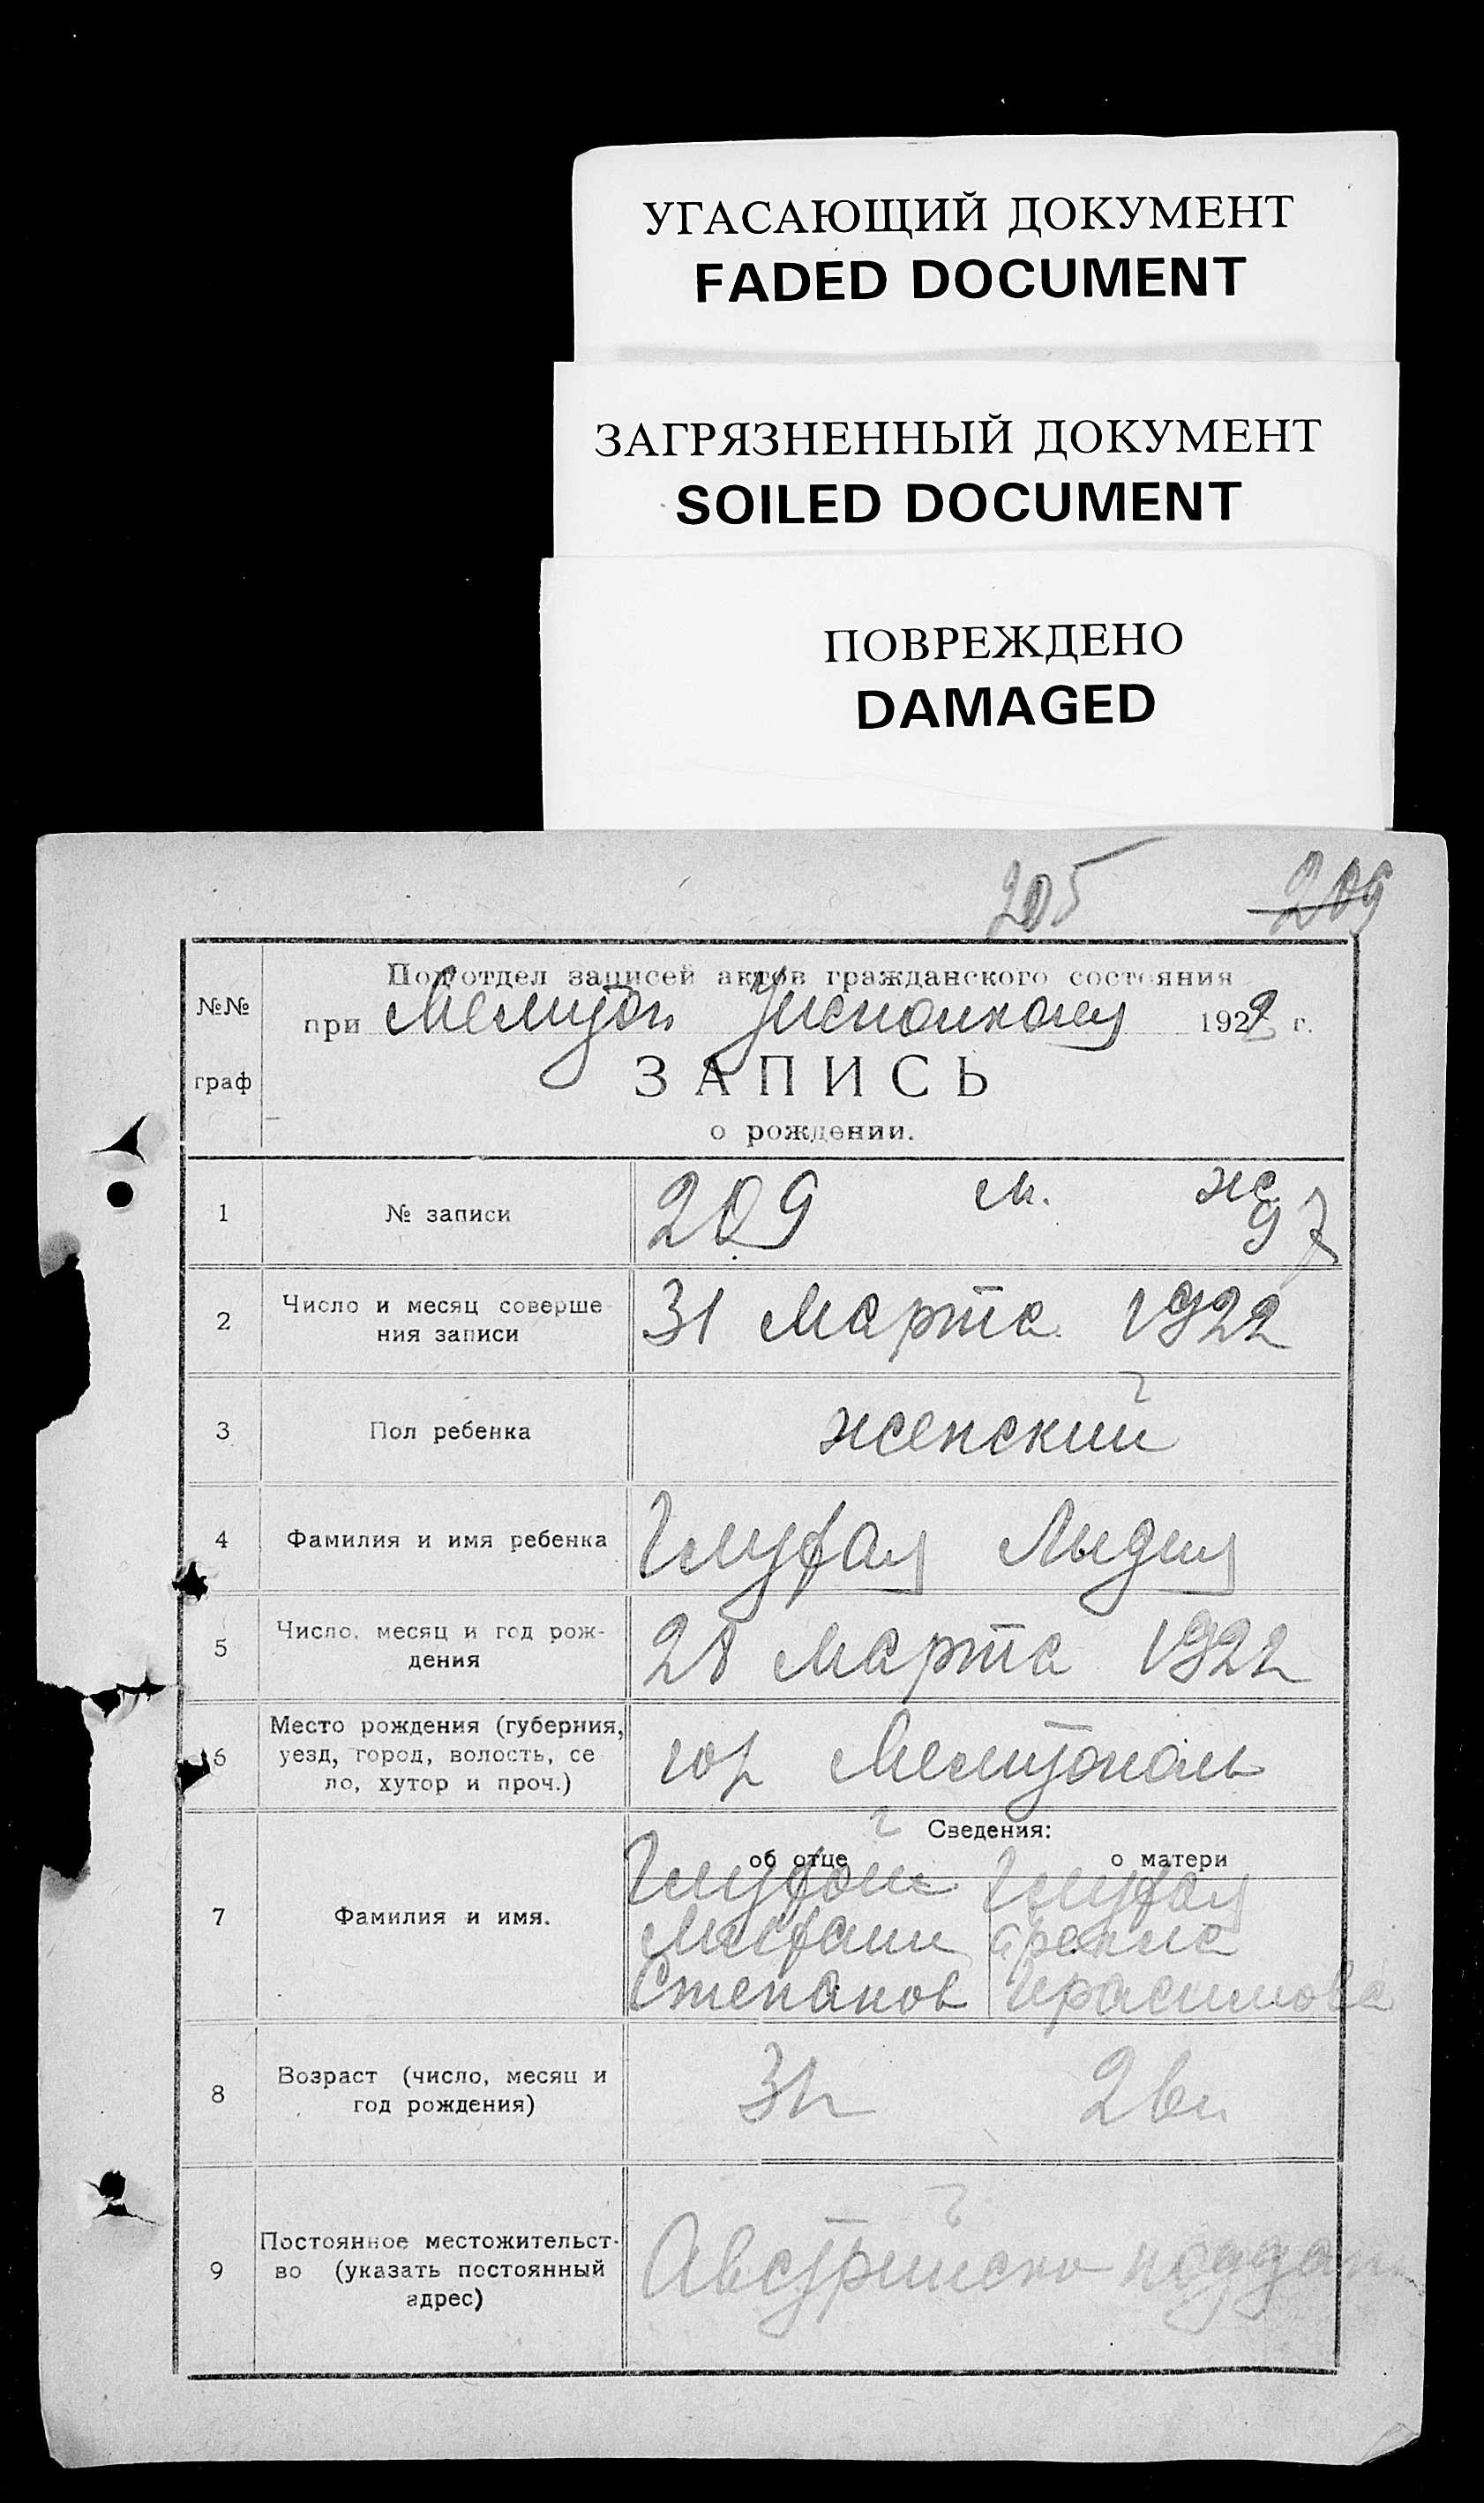 УГАСАЮЩИЙ ДОКУМЕНТ
FADED DOCUMENT
ЗАГРЯЗНЕННЫЙ ДОКУМЕНТ
SOILED DOCUMENT
ПОВРЕЖДЕНО
DAMAGED
205 209
№№ граф
Подотдел записей актов гражданского состояния
при 1922 г.
ЗАПИСЬ
о рождении.
1 № записи 209 м. ж
97
2 Число и месяц соверше-
ния записи 31 Марта 1922
3 Пол ребенка женский
4 Фамилия и имя ребенка Лидия
5 Число, месяц и год рож-
дения 28 Марта 1922
6 Место рождения (губерния,
уезд, город, волость, се
ло, хутор и проч.) гор Мелитополь
Сведения:
об отце о матери
7 Фамилия и имя.
Степанов Герасимова
8 Возраст (число, месяц и
год рождения) 31
9 Постоянное местожительст-
во (указать постоянный
адрес)